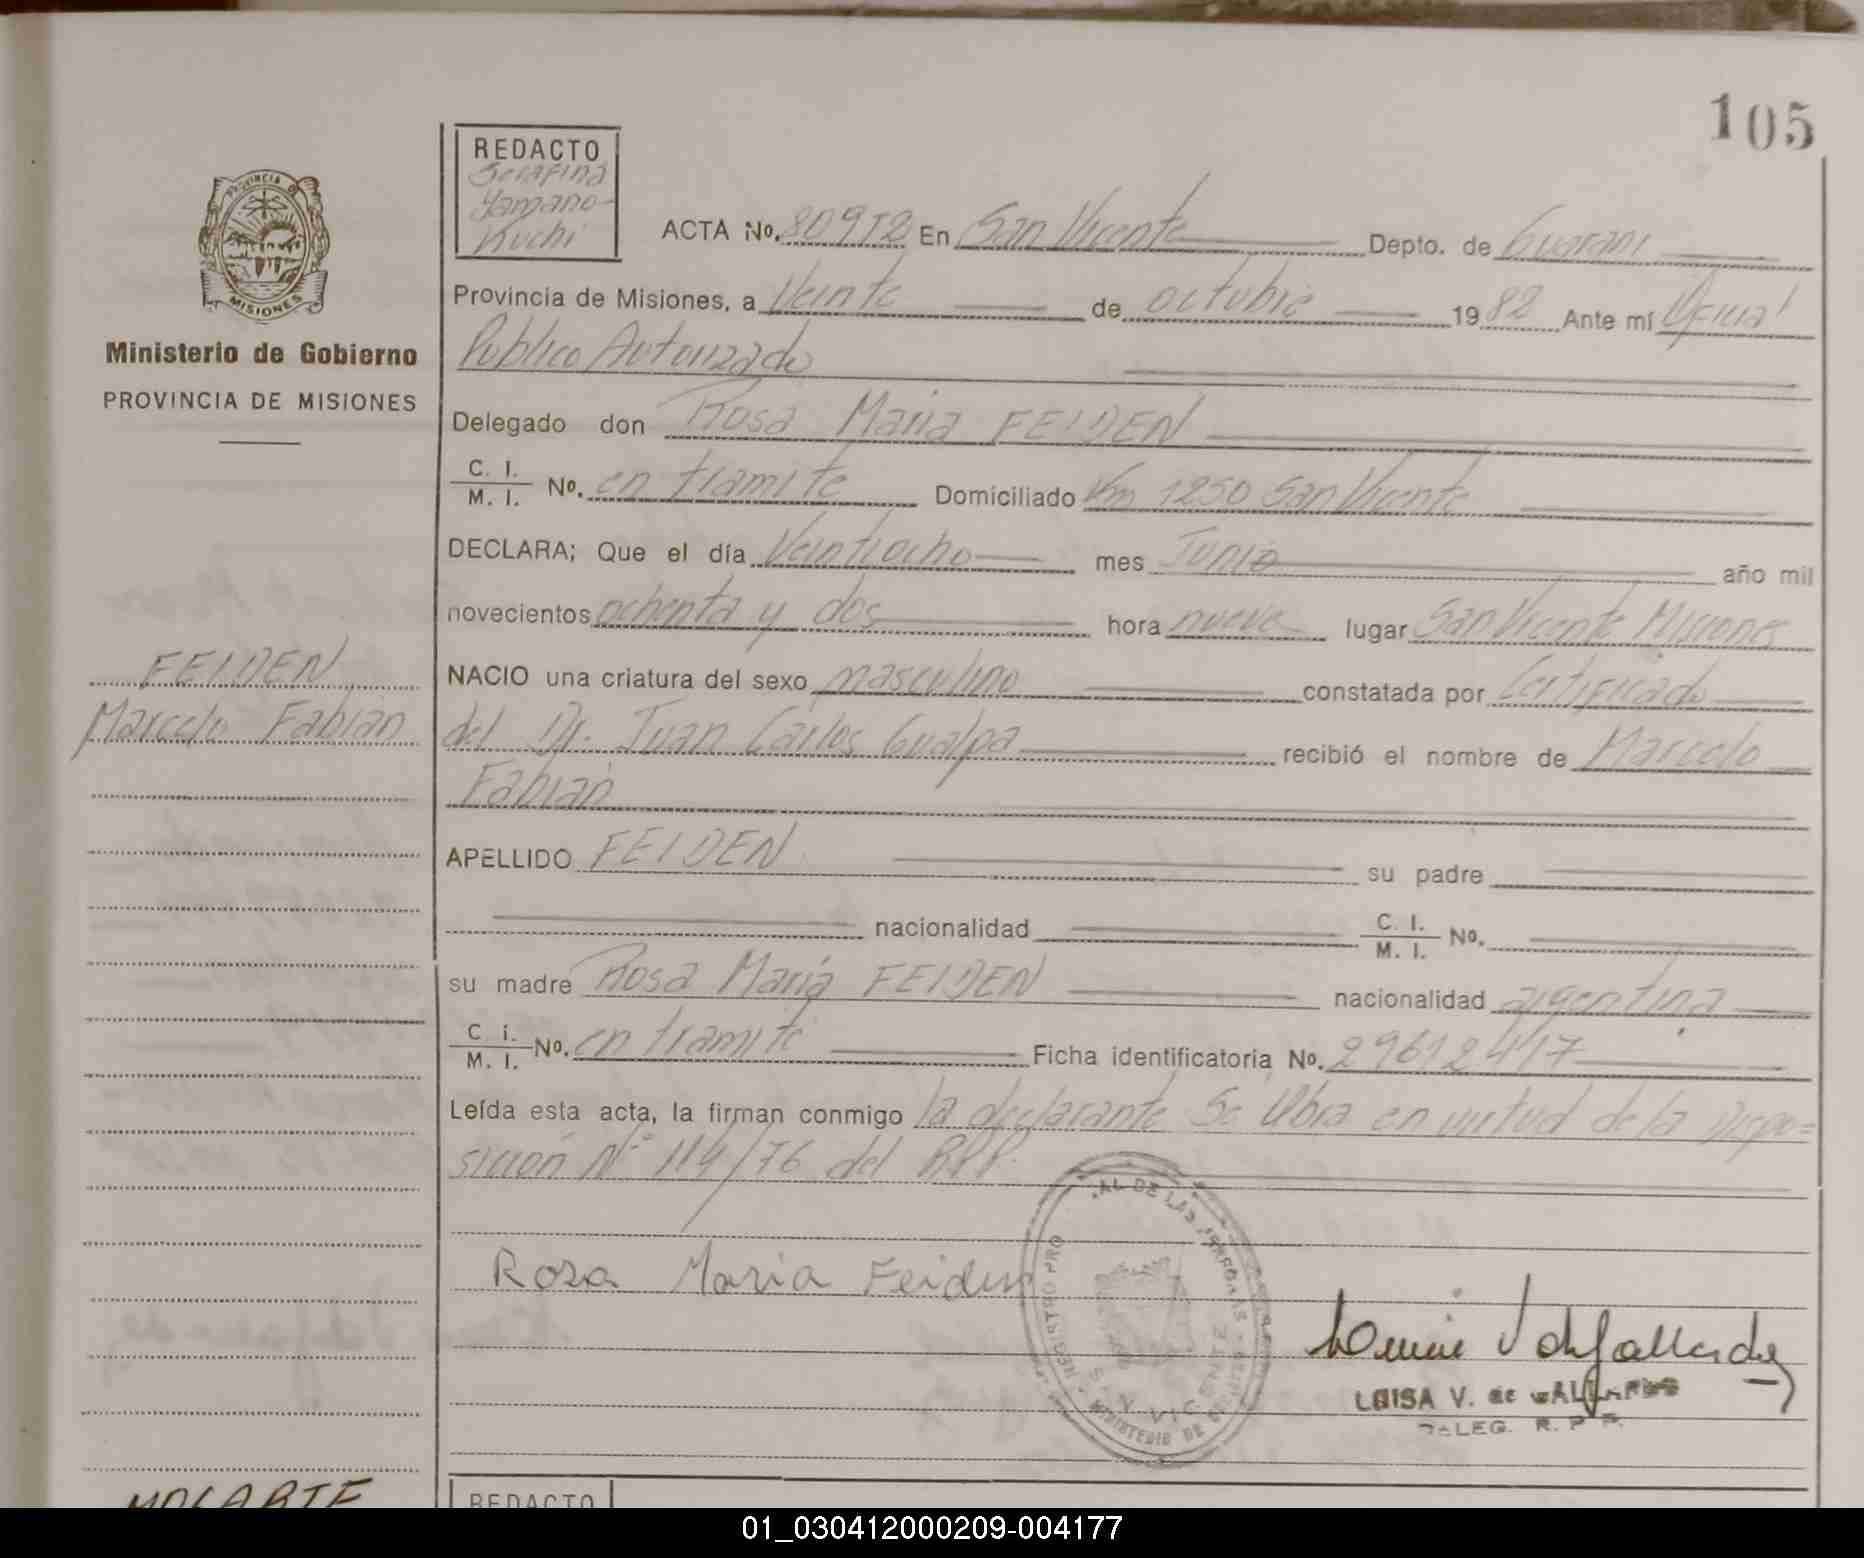 105
REDACTO
Serafina
Yamano-
Kuchi
ACTA No. 80912 En San Vicente Depto. de Guarani
PROVINCIA DE
MISIONES
Provincia de Misiones, a Veinte de octubre 1982 Ante mí Oficial
Ministerio de Gobierno
Publico Autorizado
PROVINCIA DE MISIONES
Delegado don Rosa Maria FEIDEN
C. I.
M. I. No. en tramite Domiciliado Km 1250 San Vicente
DECLARA; Que el día Veintiocho mes Junio año mil
novecientos ochenta y dos hora nueve lugar San Vicente Misiones
FEIDEN
NACIO una criatura del sexo masculino constatada por Certificado
Marcelo Fabian
del Dr. Juan Carlos Gualpa recibió el nombre de Marcelo
Fabian
APELLIDO FEIDEN su padre
nacionalidad C. I. M. I. No.
su madre Rosa María FEIDEN nacionalidad argentina
C. I. M. I. No. en tramite Ficha identificatoria No. 29612417
Leída esta acta, la firman conmigo la declarante Se Labra en virtud de la Dispo=
sición N° 114/76 del R.P.P.
Rosa Maria Feiden
REGISTRO PRO AL DE LAS PERSONAS
S. VICENTE
MINISTERIO DE
LUISA V. de GALLARDO
DELEG. R. P. P.
REDACTO
01_030412000209-004177